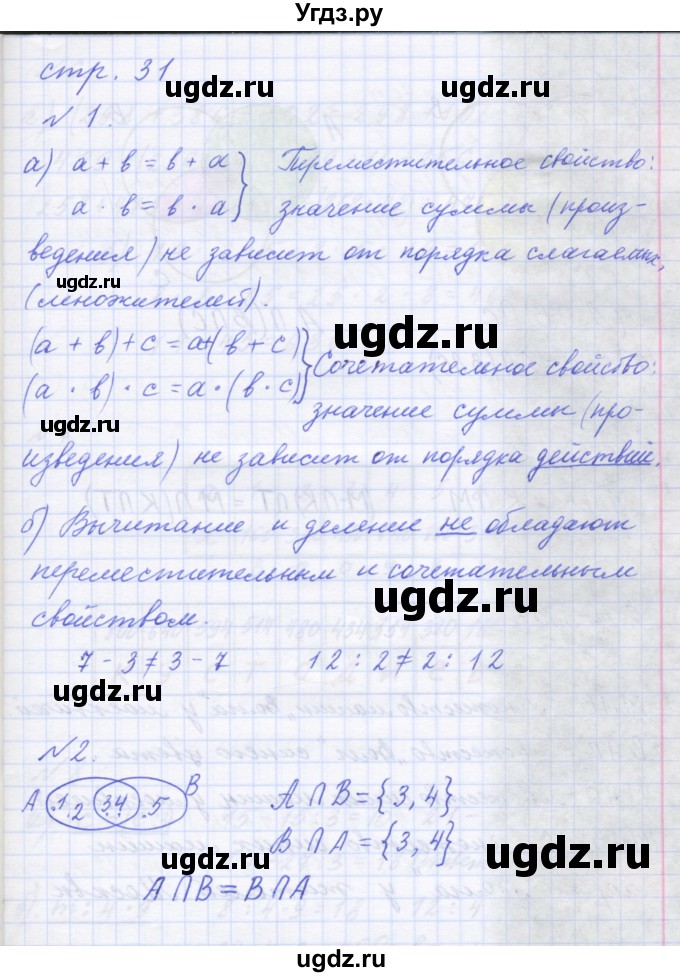 Угдз.ру
стр. 31
ugdz.ru
№ 1.
ugdz.ru
а) a + b = b + a } Переместительное свойство:
a · b = b · a } значение суммы (произ-
ведения) не зависит от порядка слагаемых,
ugdz.ru
(множителей).
ugdz.ru
(a + b) + c = a + (b + c) } Сочетательное свойство:
(a · b) · c = a · (b · c) } значение суммы (про-
ugdz.ru
ugdz.ru
изведения) не зависит от порядка действий.
б) Вычитание и деление не обладают
переместительным и сочетательным
ugdz.ru
свойством.
7 - 3 ≠ 3 - 7 12 : 2 ≠ 2 : 12
ugdz.ru
№ 2.
A .1 .2 3. 4. .5 B A ∩ B = {3, 4}
B ∩ A = {3, 4}
ugdz.ru
ugdz.ru
A ∩ B = B ∩ A
ugdz.ru